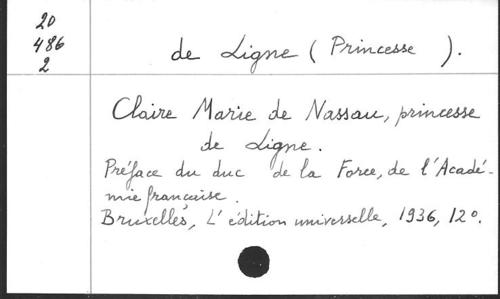 20
486
2
de Ligne ( Princesse ).
Claire Marie de Nassau, princesse
de Ligne.
Préface du duc de la Force, de l'Acadé-
mie française.
Bruxelles, L'édition universelle, 1936, 12°.